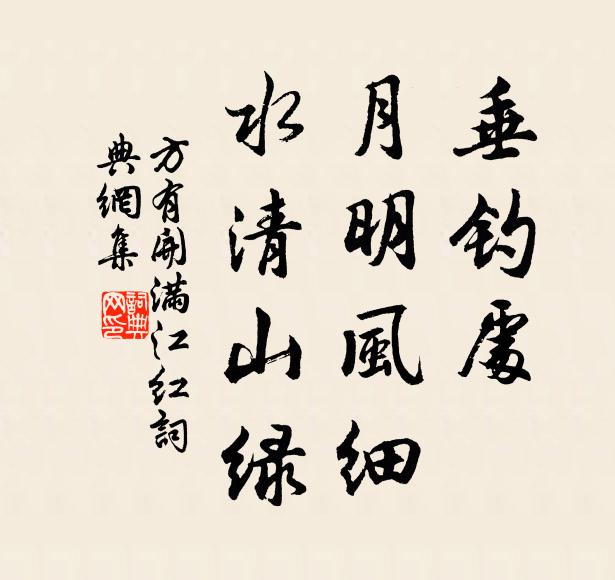 垂钓處
月明風细
水清山緑
方有開满江红詞
典網集
詞典
网印